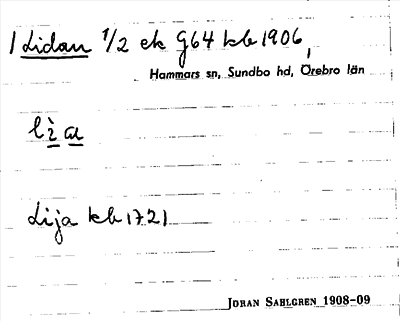 / Lidan 1/2 ek g64 kb 1906,
Hammars sn, Sundbo hd, Örebro län
lì a
Lija kb 1721
JOHAN SAHLGREN 1908-09